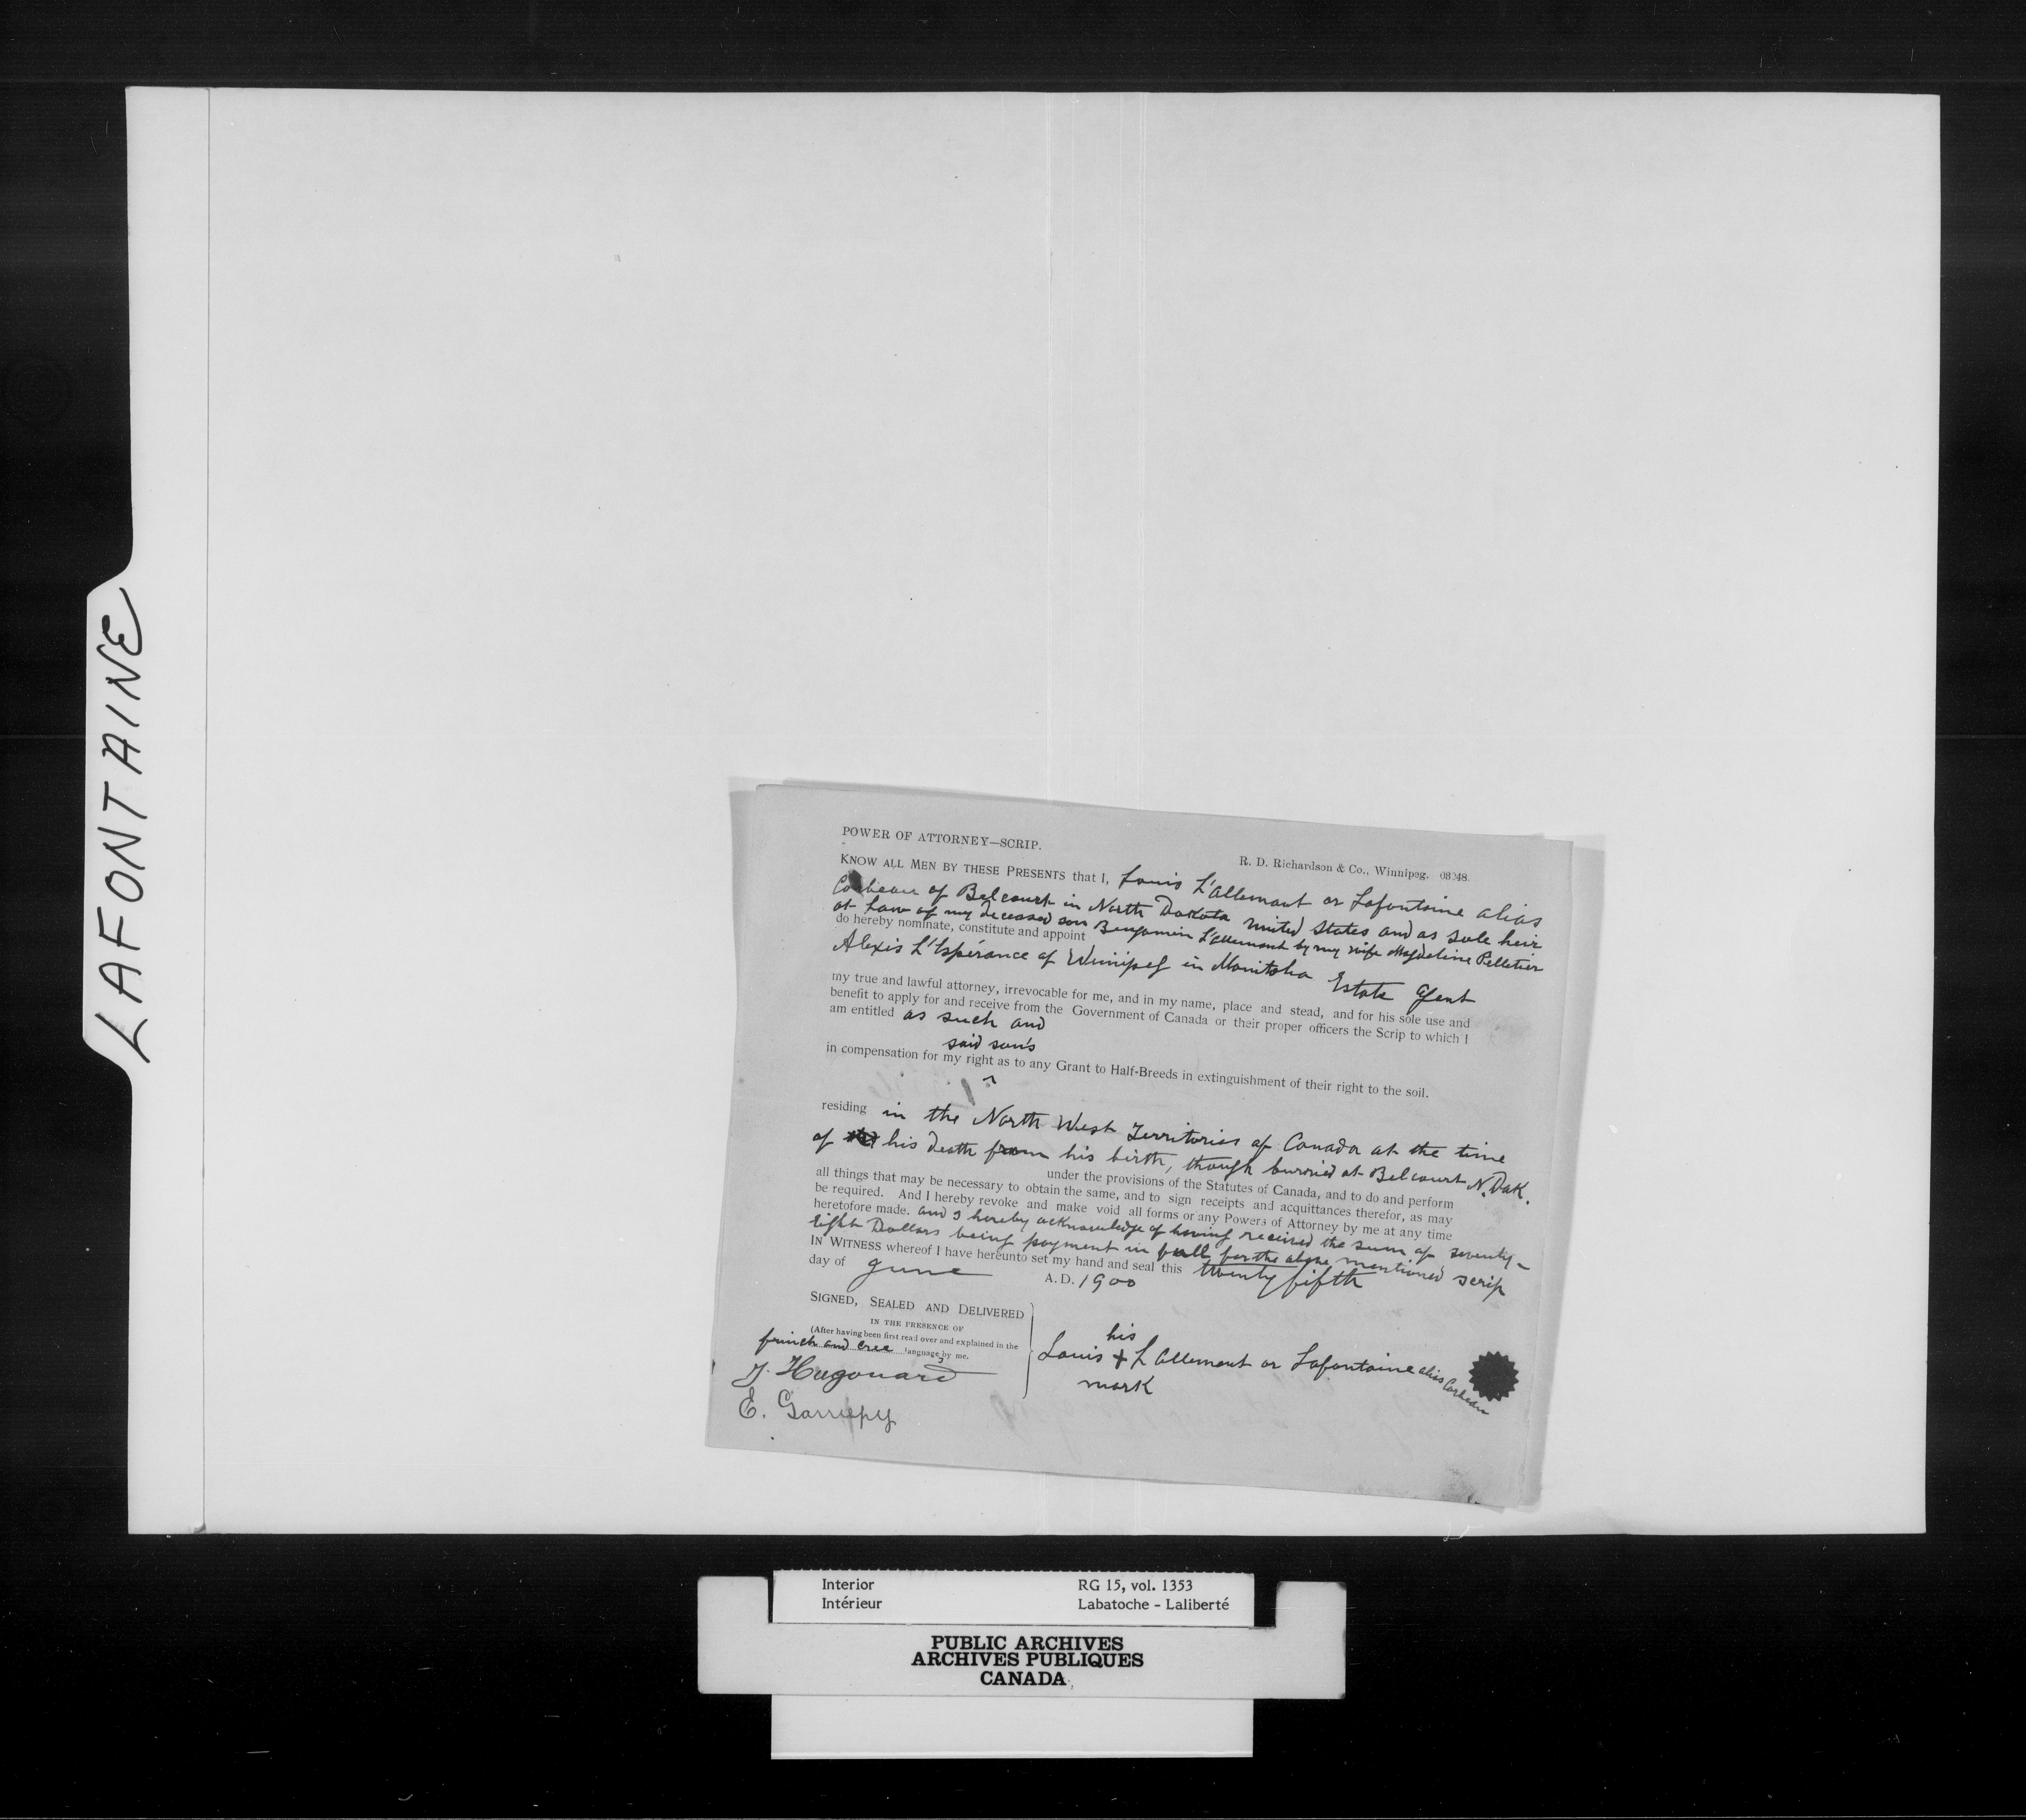 LAFONTAINE
POWER OF ATTORNEY—SCRIP.
R. D. Richardson & Co., Winnipeg. 08048.
KNOW ALL MEN BY THESE PRESENTS that I, Louis L'allemont or Lafontaine alias
Corbeau of Belcourt in North Dakota United States and as sole heir
at Law of my deceased son Benjamin L'allemont by my wife Magdeline Pelletier
do hereby nominate, constitute and appoint
Alexis L'Espérance of Winnipeg in Manitoba Estate Agent
my true and lawful attorney, irrevocable for me, and in my name, place and stead, and for his sole use and
benefit to apply for and receive from the Government of Canada or their proper officers the Scrip to which I
am entitled as such and
said son's
in compensation for my right as to any Grant to Half-Breeds in extinguishment of their right to the soil.
residing in the North West Territories of Canada at the time
of his death from his birth, though burried at Belcourt N. Dak.
under the provisions of the Statutes of Canada, and to do and perform
all things that may be necessary to obtain the same, and to sign receipts and acquittances therefor, as may
be required. And I hereby revoke and make void all forms or any Powers of Attorney by me at any time
heretofore made. and I hereby acknowledge of having received the sum of seventy-
eight Dollars being payment in full for the above mentioned scrip
IN WITNESS whereof I have hereunto set my hand and seal this twenty fifth
day of June A. D. 1900
SIGNED, SEALED AND DELIVERED
IN THE PRESENCE OF
(After having been first read over and explained in the
french and cree language, by me.
J. Hugonard
E. Garriepy
his
Louis + L'allemont or Lafontaine alias Corbeau
mark
Interior
Intérieur
RG 15, vol. 1353
Labatoche - Laliberté
PUBLIC ARCHIVES
ARCHIVES PUBLIQUES
CANADA